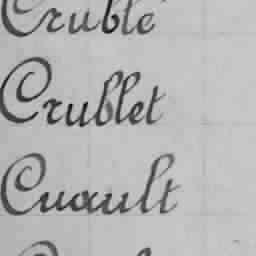 Cruble
Crublet
Cuault